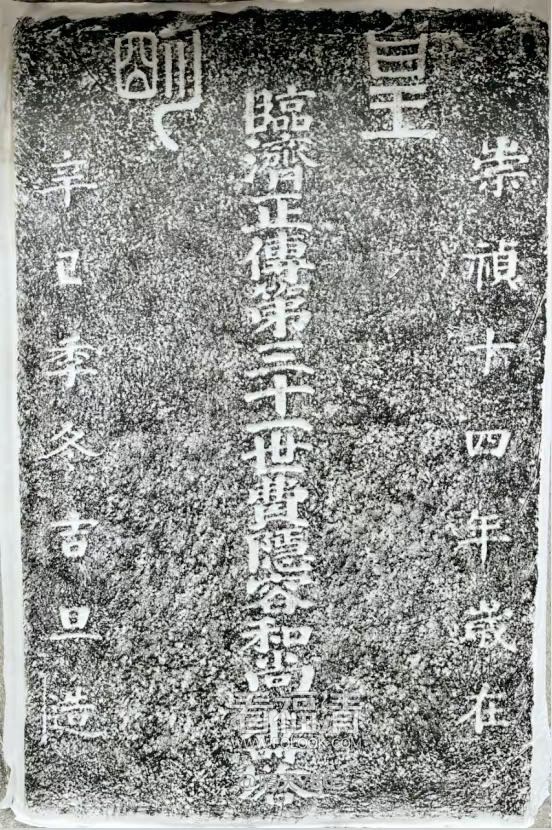 皇朙
崇禎十四年歲在
臨濟正傳第三十一世費隱容和尚壽塔
辛巳季冬吉旦造
看福清